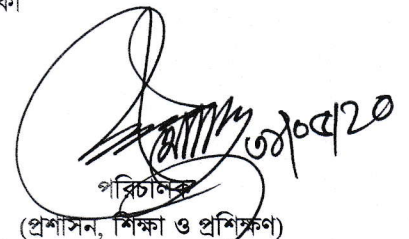 ৩১/০৫/২০
পরিচালক
(প্রশাসন, শিক্ষা ও প্রশিক্ষণ)